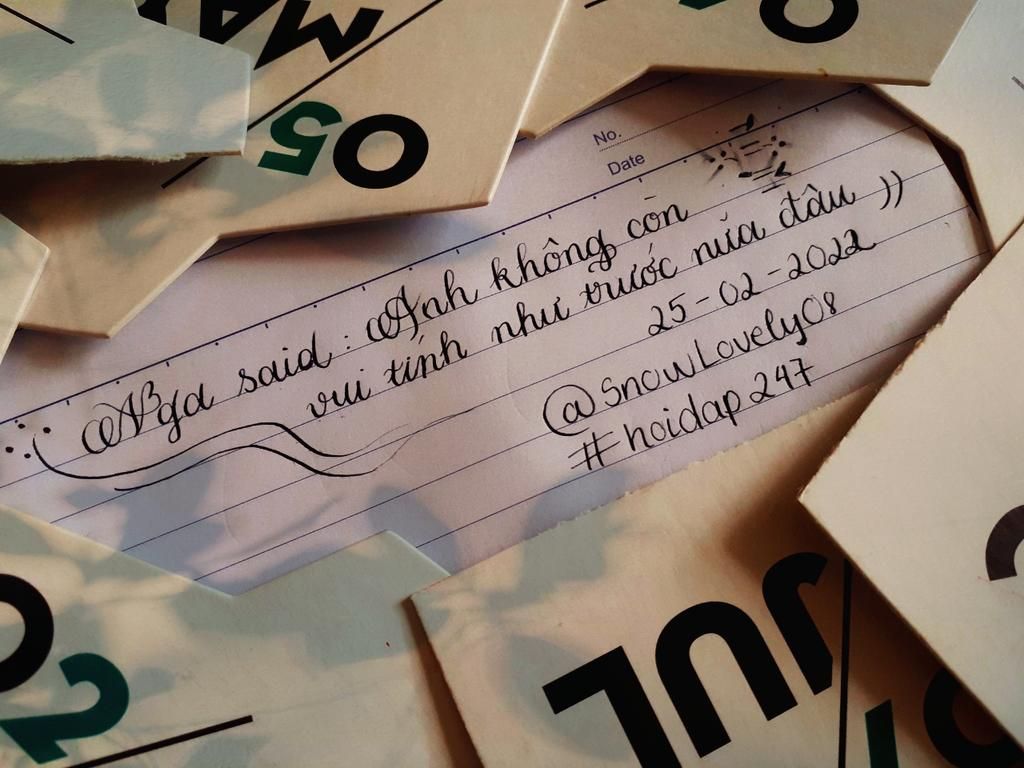 MAY
05
0
No.
Date
Nga said : Anh không còn
vui tính như trước nữa đâu ))
25-02-2022
@SnowLovely08
#hoidap247
02
JUL
07